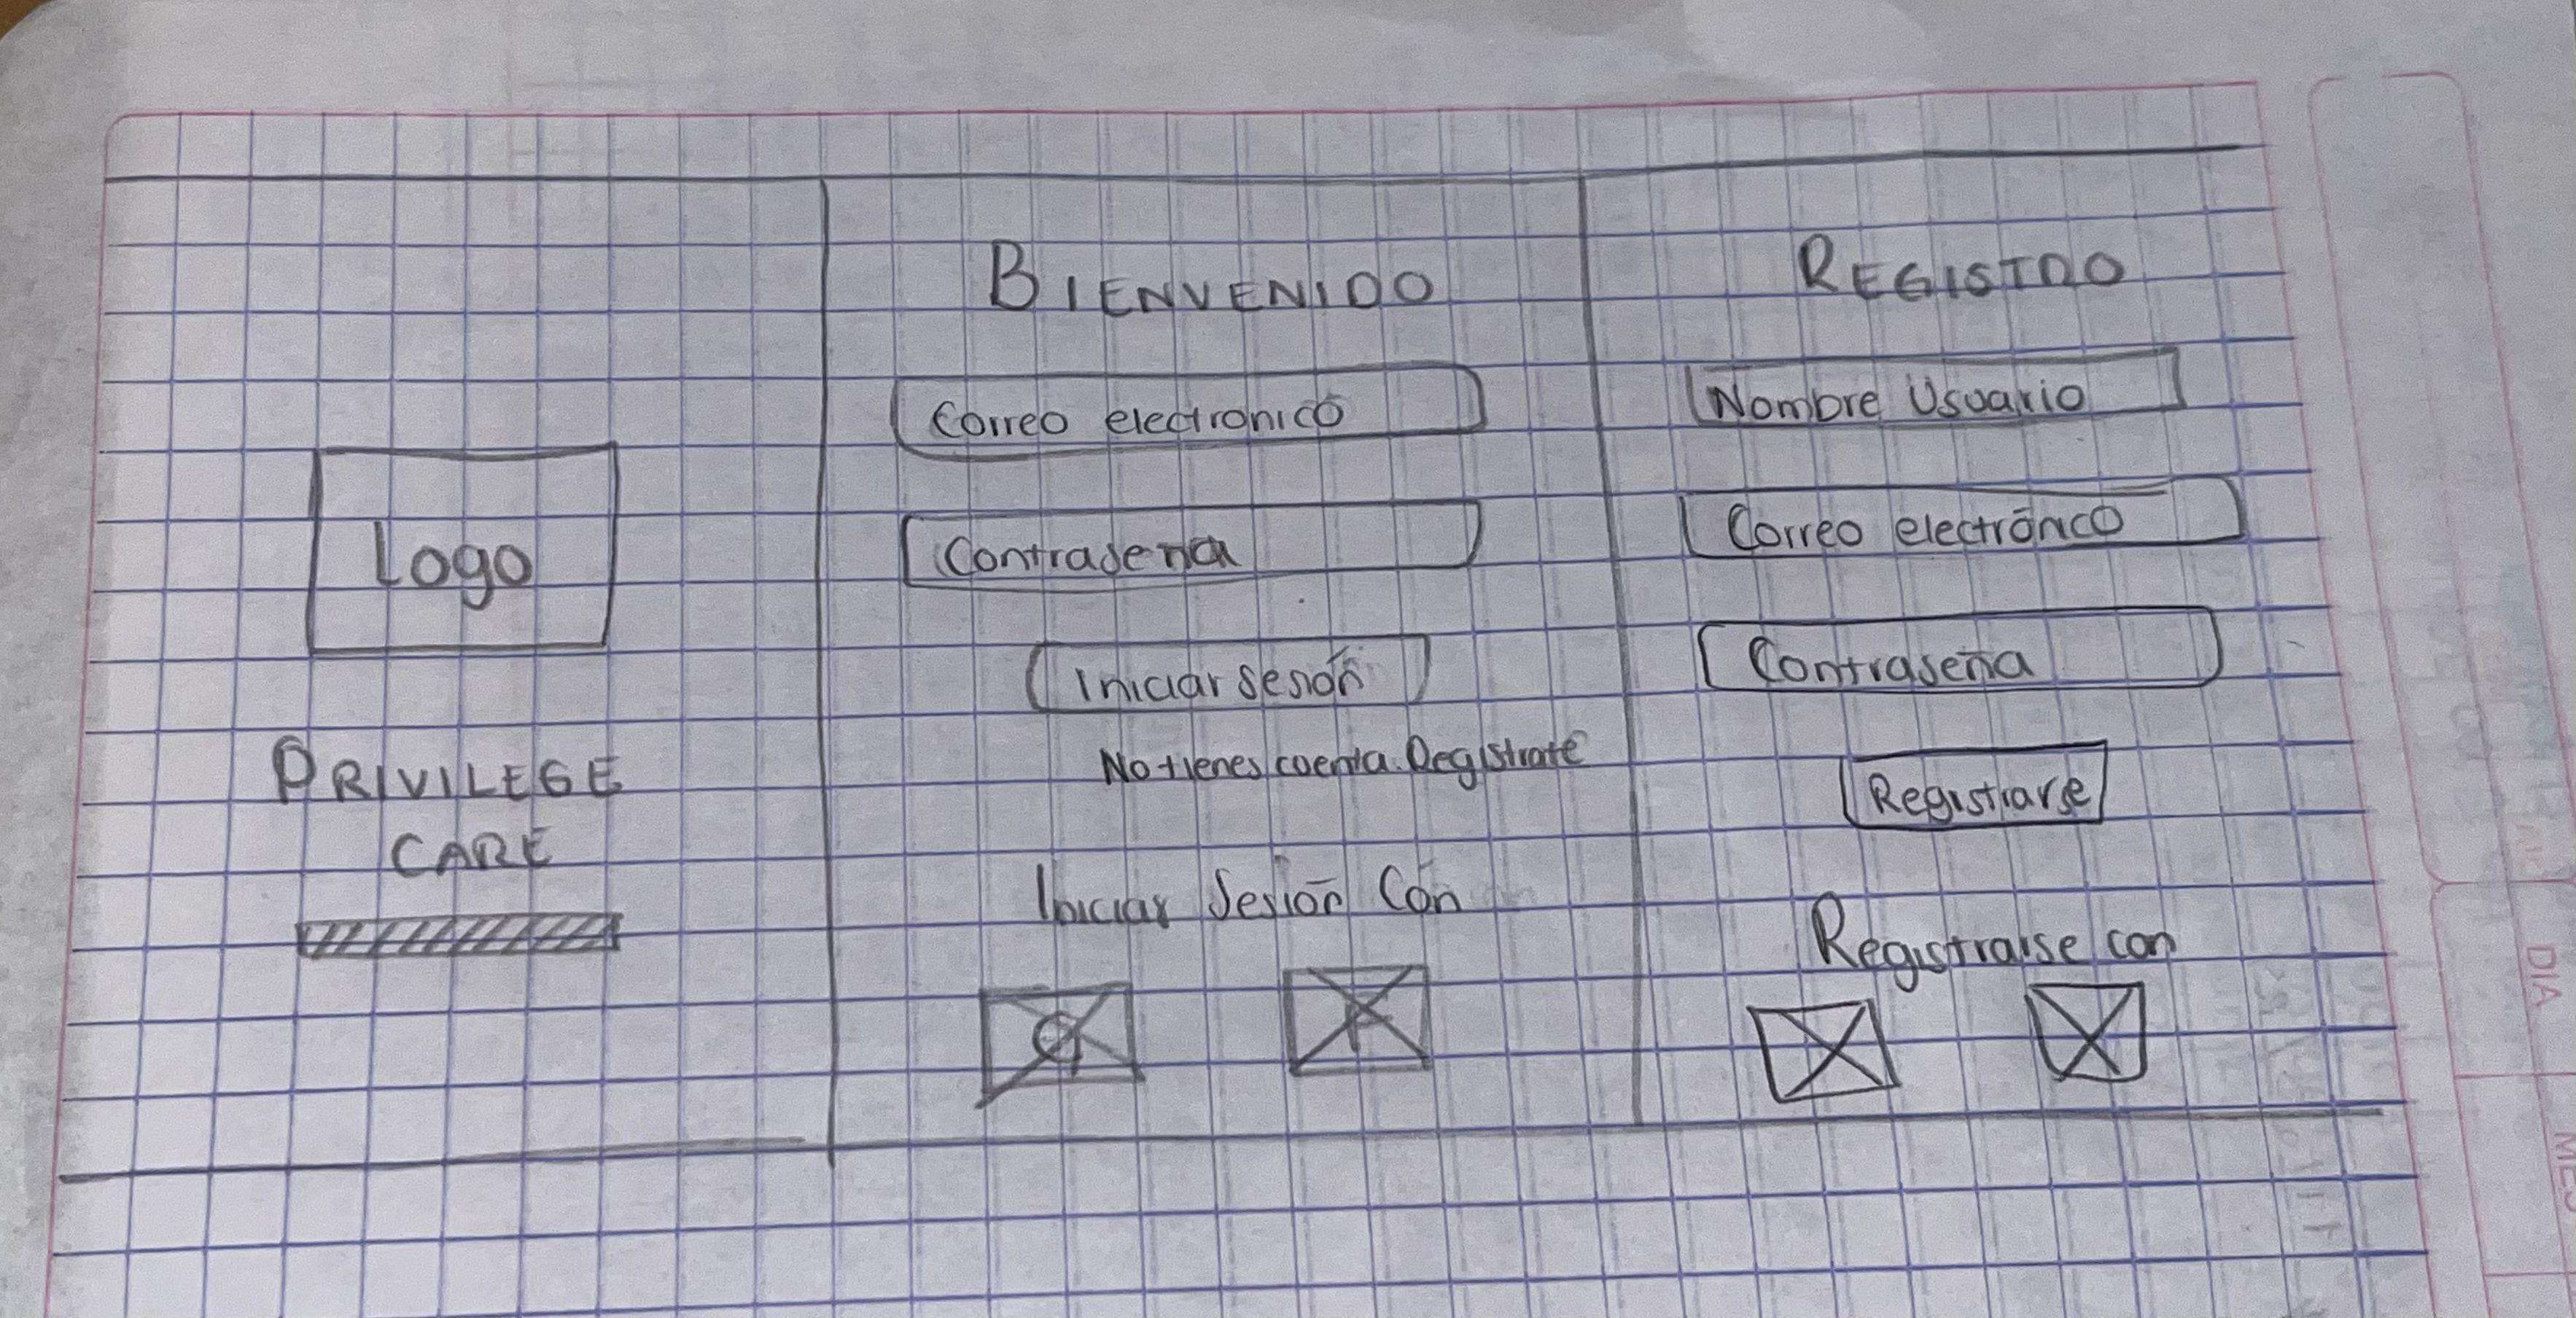 Logo
PRIVILEGE
CARE
BIENVENIDO
Correo electronico
Contrasena
Iniciar sesión
No tienes cuenta. Registrate
Iniciar Sesión Con
G
F
REGISTRO
Nombre Usuario
Correo electrónco
Contraseña
Registrarse
Registrarse con
DIA
MES